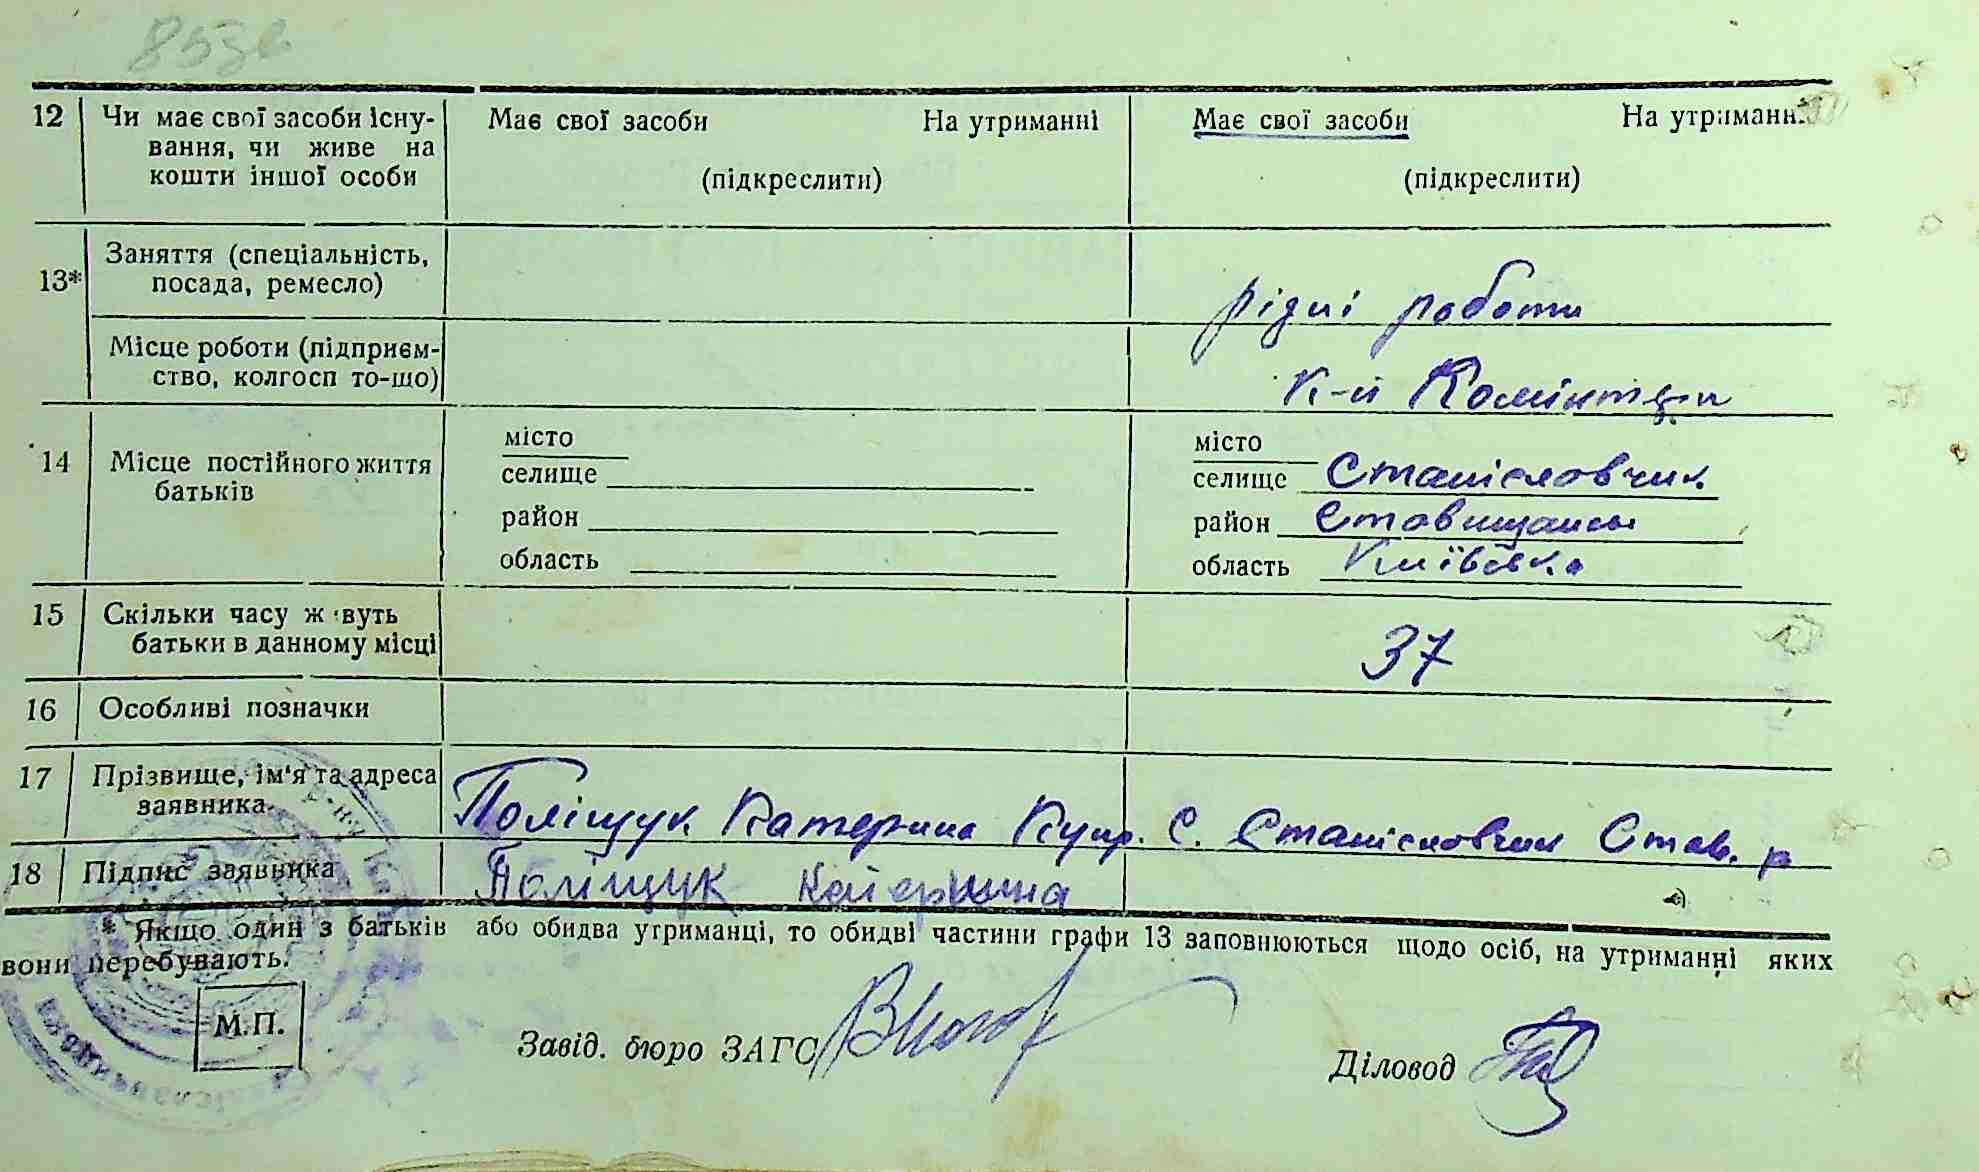 853
12 Чи має свої засоби існу- Має свої засоби На утриманні Має свої засоби На утриманні
вання, чи живе на
кошти іншої особи (підкреслити) (підкреслити)
Заняття (спеціальність,
13* посада, ремесло) рідні роботи
Місце роботи (підприєм-
ство, колгосп то-що) К-п Комінтерн
14 Місце постійного життя місто місто
батьків селище селище Станіславчик
район район Ставищанськ
область область Київська
15 Скільки часу живуть
батьки в данному місці 37
16 Особливі позначки
17 Прізвище, ім'я та адреса
заявника Поліщук Катерина Купр. С. Станіславчик Став. р
18 Підпис заявника Поліщук Катерина
* Якщо один з батьків або обидва утриманці, то обидві частини графи 13 заповнюються щодо осіб, на утриманні яких
вони перебувають.
М.П.
Завід. бюро ЗАГС Діловод